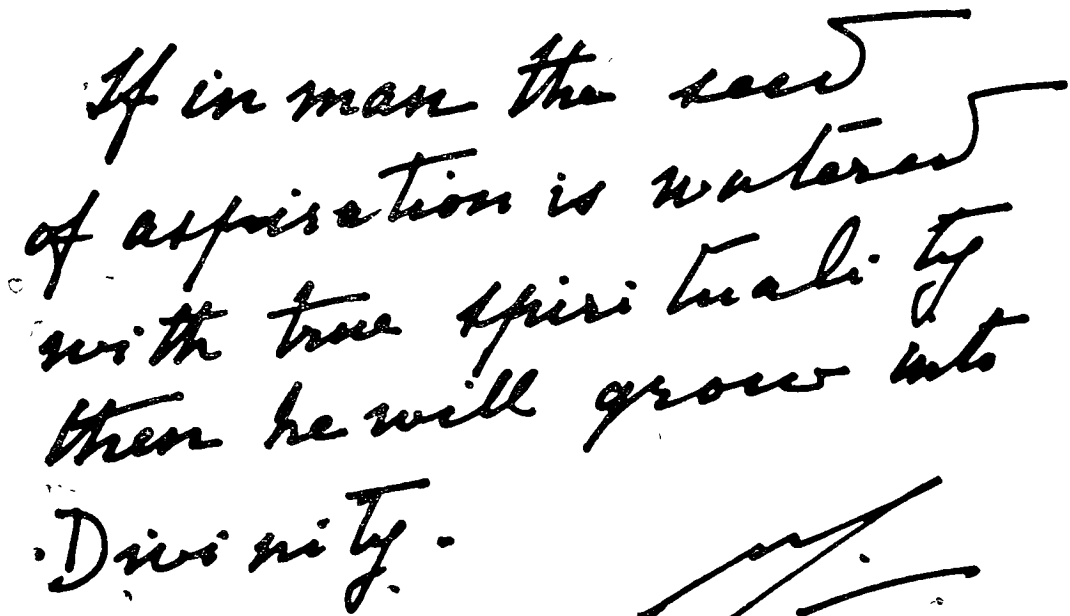 If in man the seed
of aspiration is watered
with true spirituality
then he will grow into
Divinity.